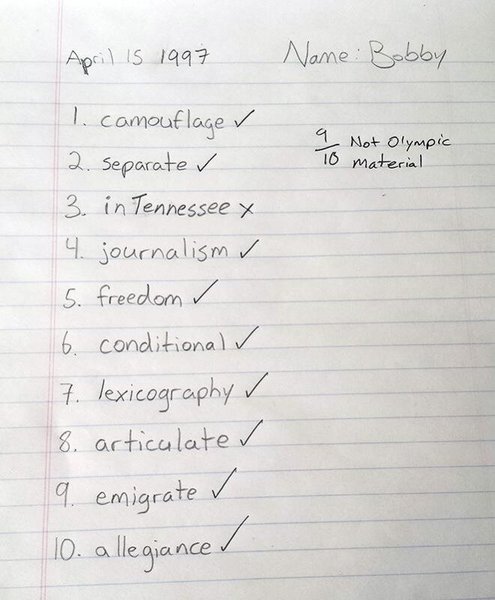 April 15 1997 Name: Bobby
1. camouflage ✓
9/10 Not Olympic
Material
2. separate ✓
3. in Tennessee x
4. journalism ✓
5. freedom ✓
6. conditional ✓
7. lexicography ✓
8. articulate ✓
9. emigrate ✓
10. allegiance ✓